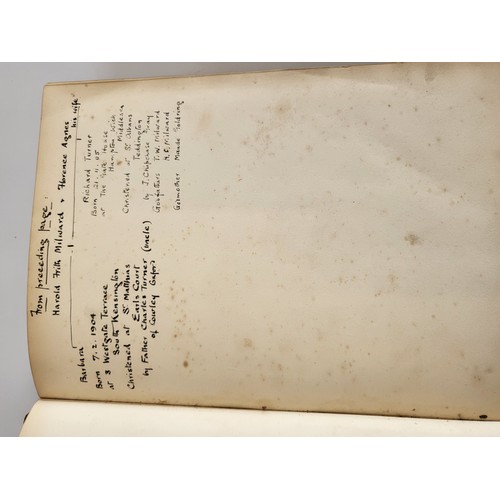 From preceeding page:
Harold Frith Milward & Florence Agnes
his wife
Barbara
Born 7.2.1904
at 3 Westgate Terrace
South Kensington
Christened at St Matthias
Earls Court
by Father Charles Turner (uncle)
of Cowley Oxford
Richard Turner
Born 21.11.05
at The Gate House
Hampton Wick
Middlesex
Christened at St Albans
Teddington
by J. Chipchase
Godfathers T. W. Milward
H. F. Milward
Godmother Maude Goldring